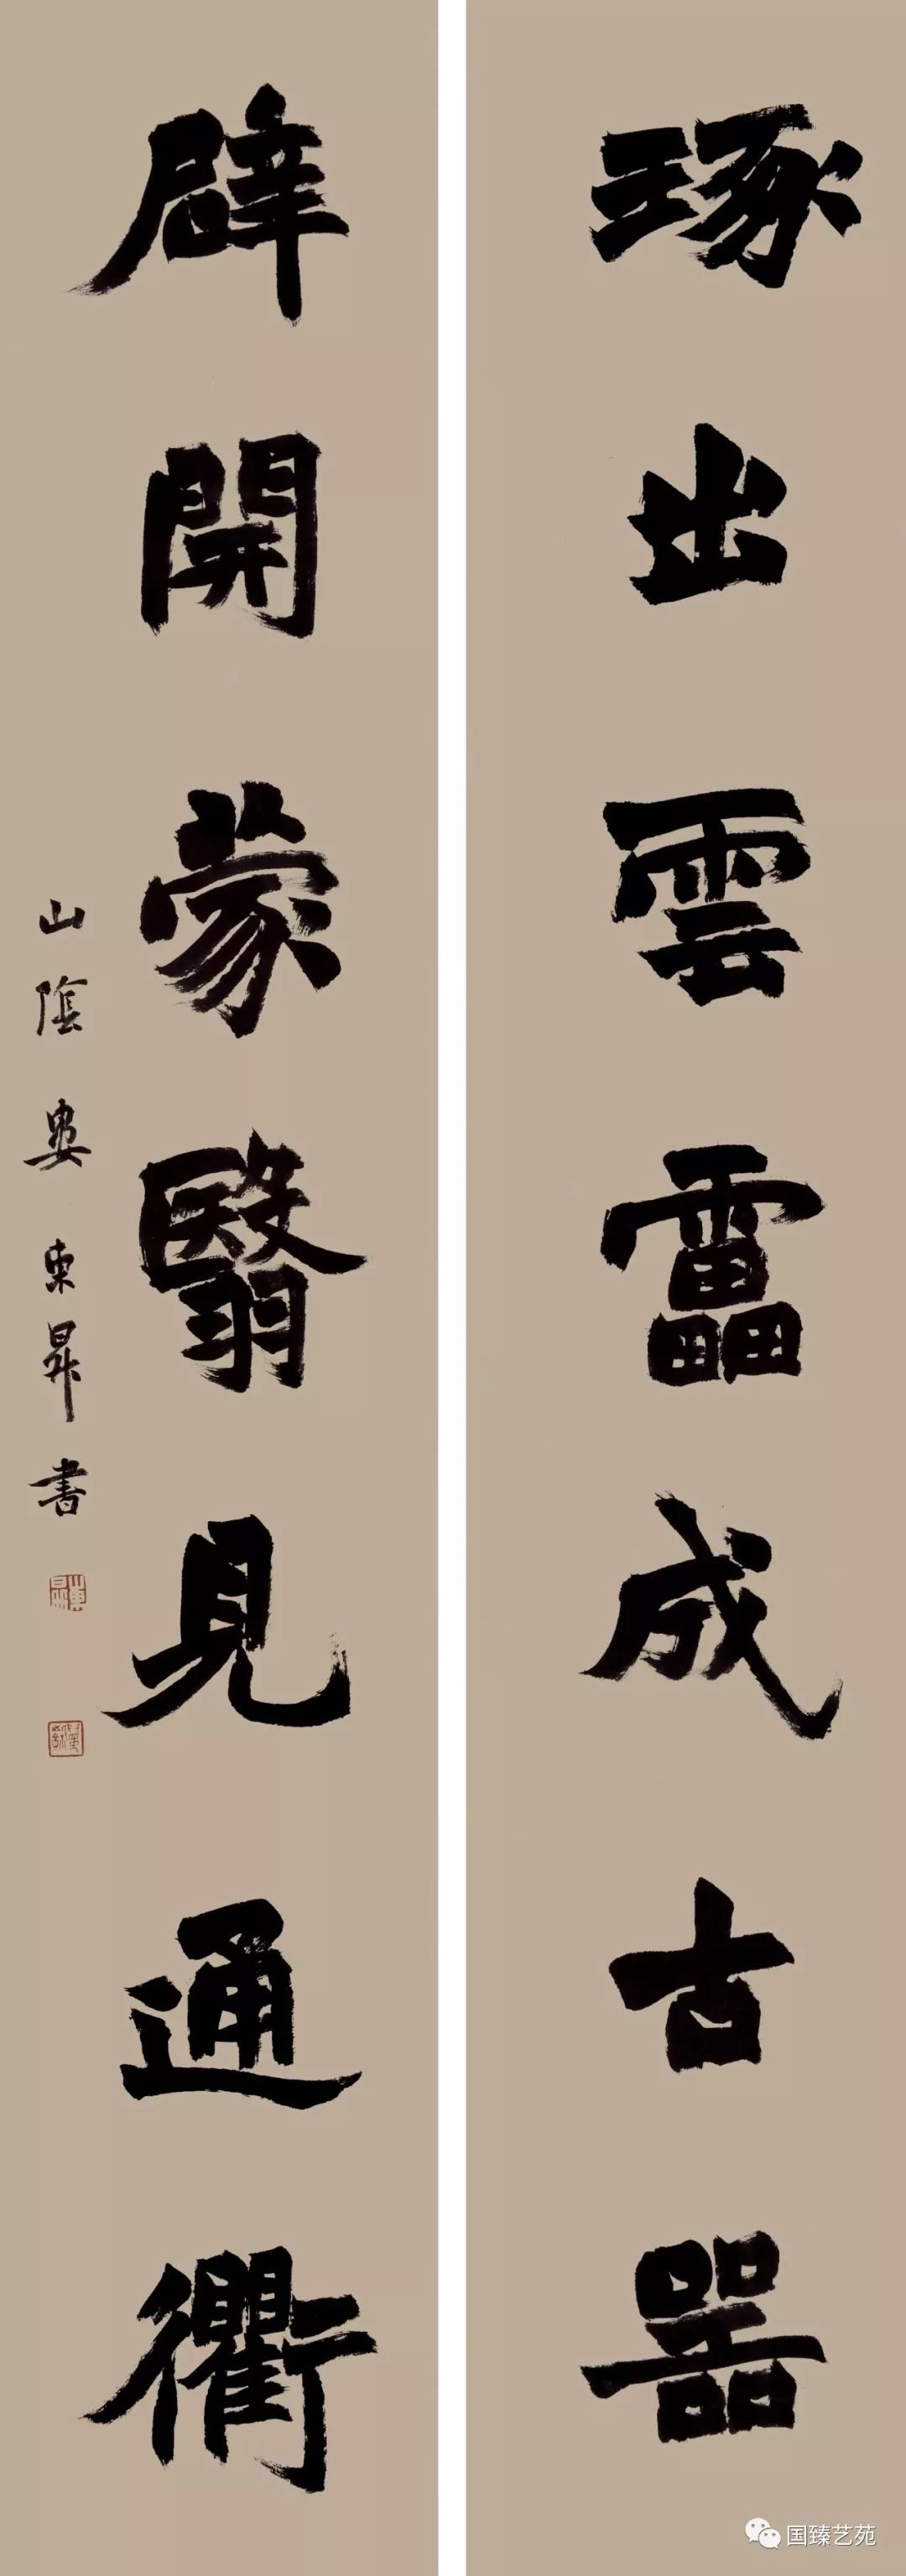 琢出雲靁成古器
辟開蒙翳見通衢
山陰婁東昇書
国臻艺苑